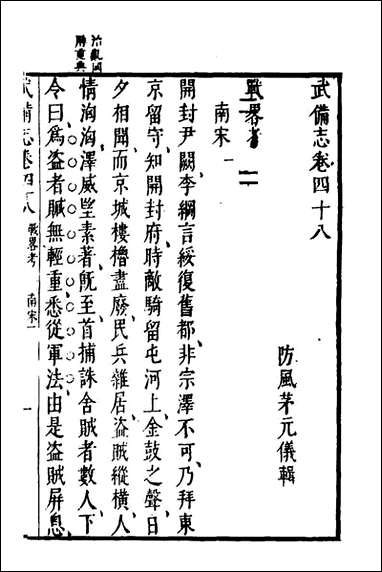 武備志卷四十八
防風茅元儀輯
戰畧考
南宋一
開封尹闕李綱言綏復舊都非宗澤不可乃拜東
京留守知開封府時敵騎留屯河上金鼓之聲日
夕相聞而京城樓櫓盡廢民兵雜居盜賊縱橫人
情洶洶澤威望素著既至首捕誅舍賊者數人下
令曰爲盜者贓無輕重悉從軍法由是盜賊屏息
武備志卷四八
戰畧考
南宋一
一